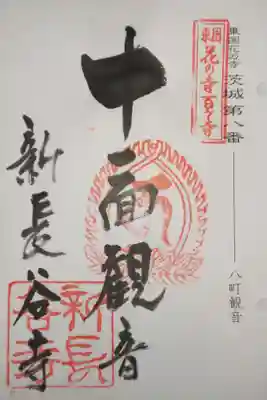 東国花の寺 茨城第八番 八町観音
東国花の寺百ヶ寺
十一面観音
新長谷寺
新長谷寺